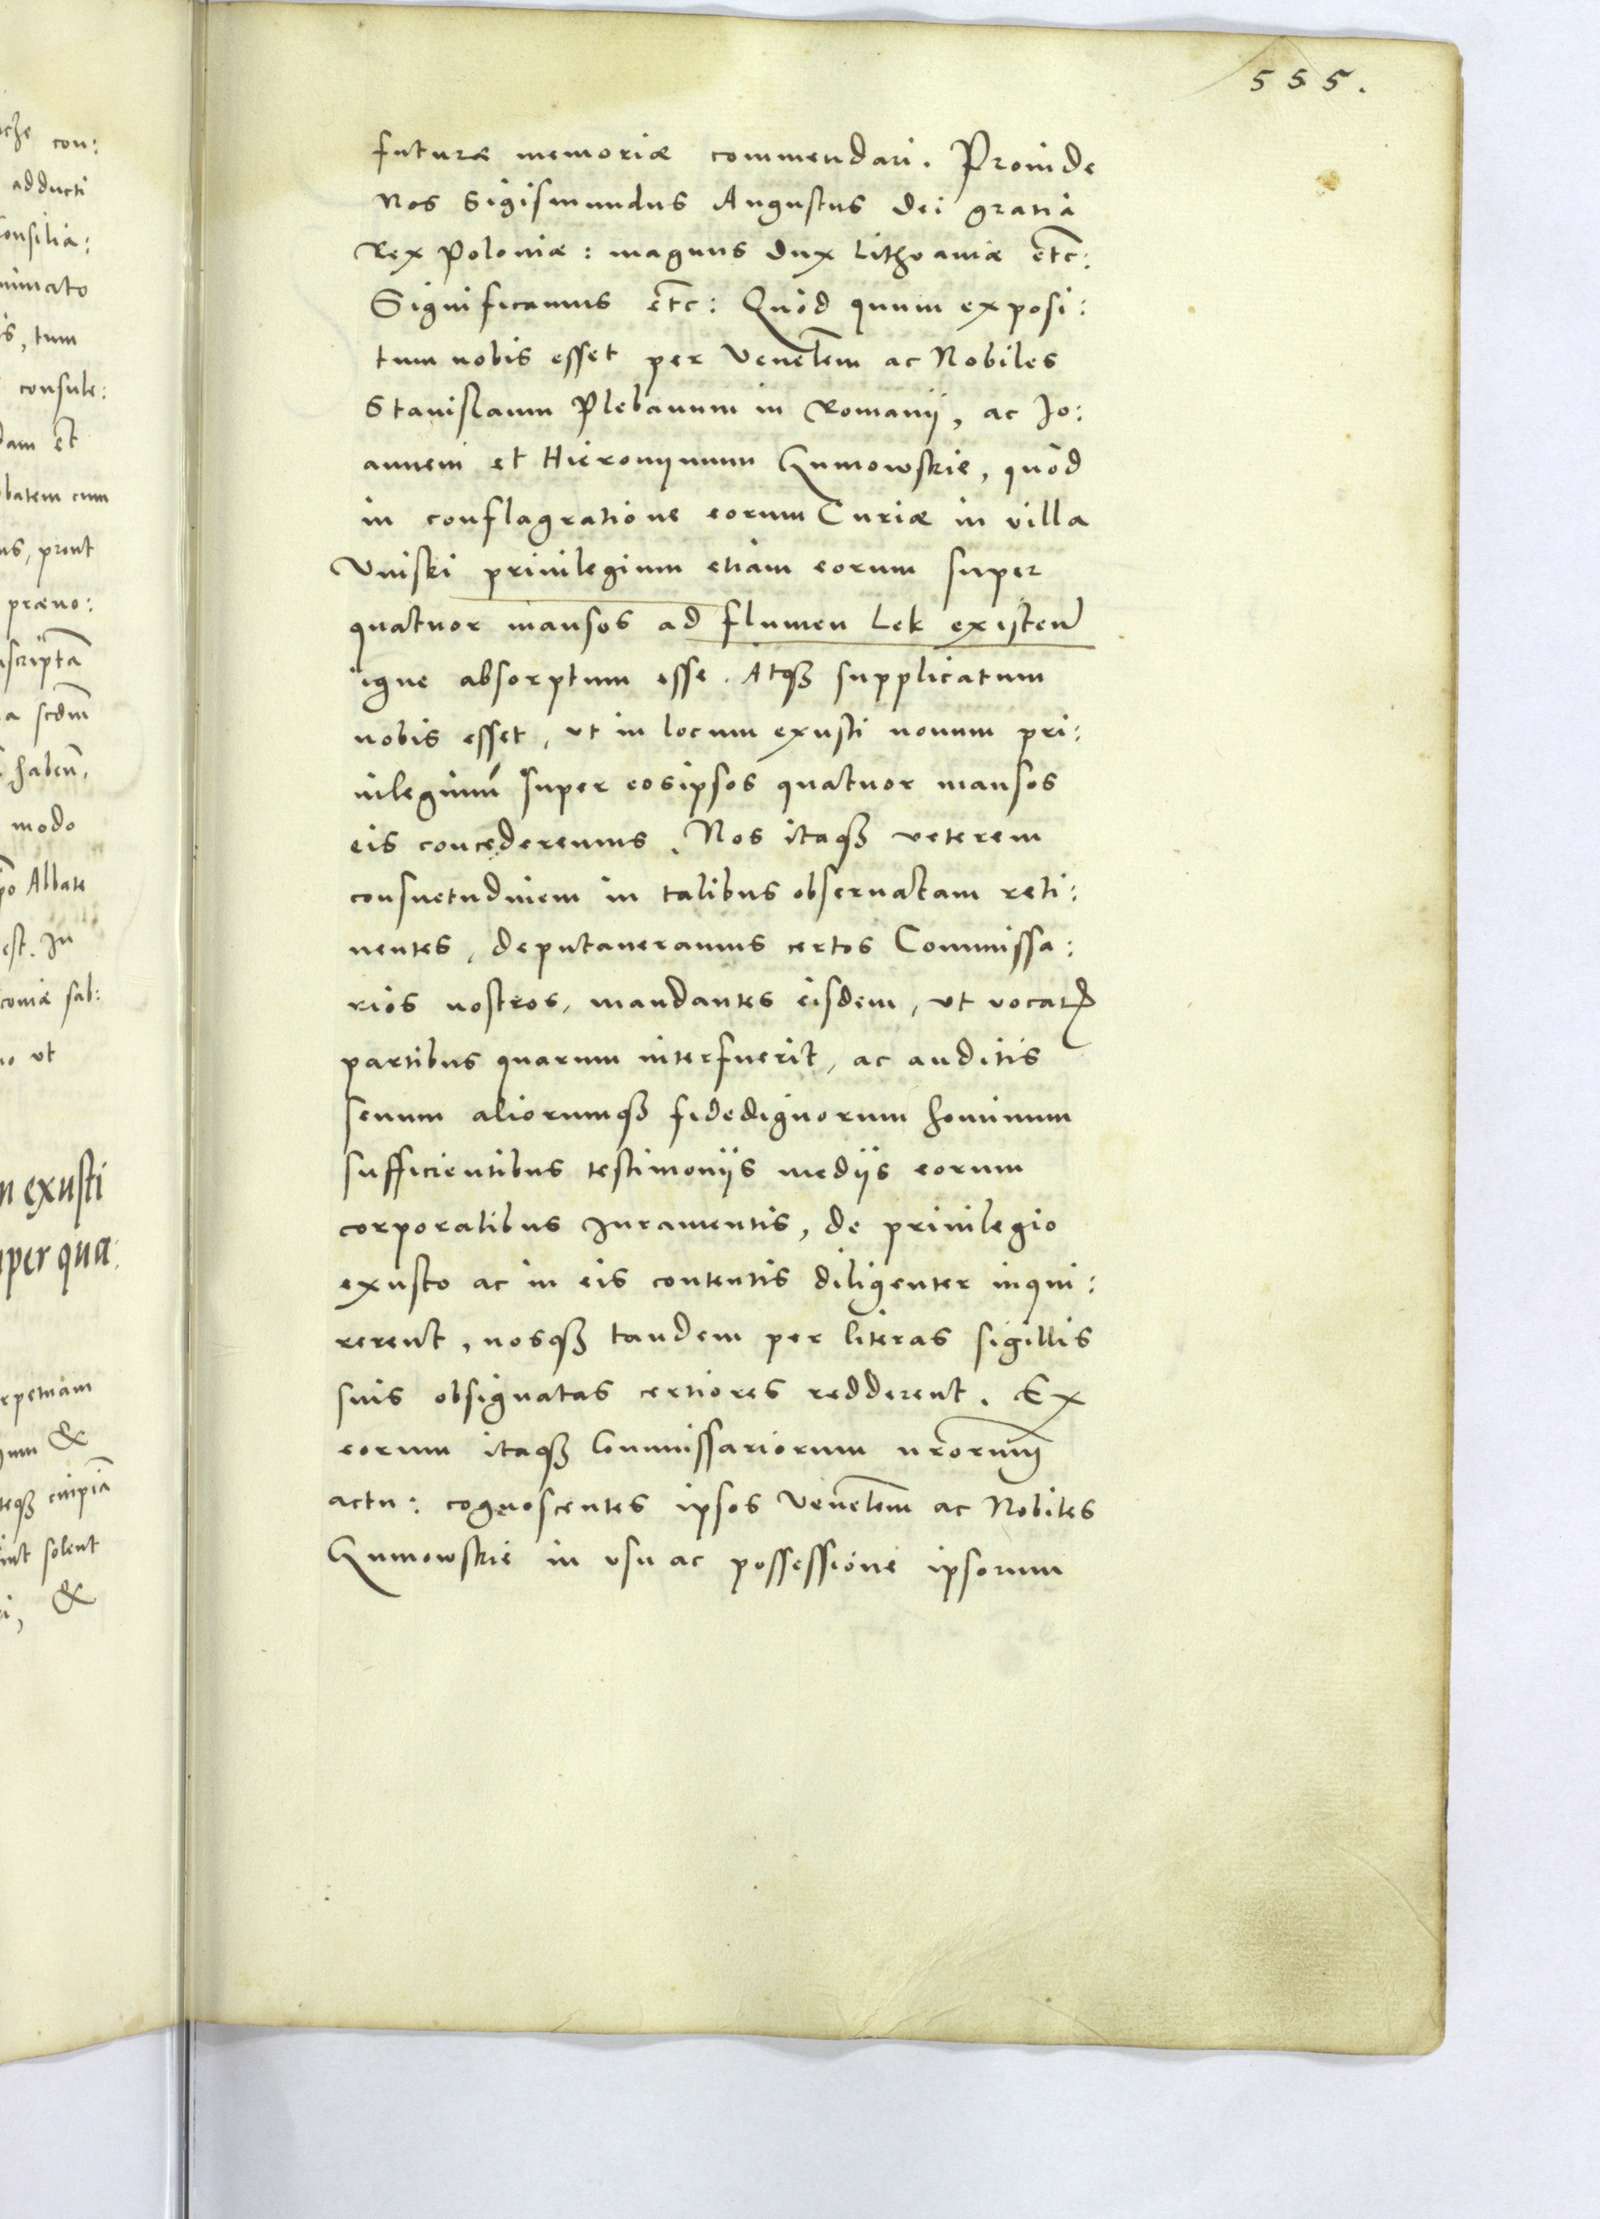 che con:
adducti
consilia:
minato
is, tum
consule:
dam et
bbatem cum
us, prout
præno:
scriptã
a scdm̃
habeñ,
modo
põ Abbate
est. In
coniæ sab:
no ut
m exusti
uper qua:
rpetuam
gnum &
teqꝫ cuipiã
int solent
ri, &
555.
futuræ memoriæ commendari. Proinde
Nos Sigismundus Augustus Dei gratia
Rex Poloniæ: magnus Dux Lithvaniæ etc:
Significamus etc: Quòd quum exposi:
tum nobis esset per Venelem̃ ac Nobiles
Stanislaum Plebanum in Romanij, ac Jo:
annem et Hieronijmum Gumowskie, quòd
in conflagratione eorum Curiæ in villa
Uniski priuilegium etiam eorum super
quatuor mansos ad flumen Lek existeñ
igne absorptum esse. Atqꝫ supplicatum
nobis esset, ut in locum exusti nouum pri:
uilegium super eosipsos quatuor mansos
eis concederemus. Nos itaqꝫ veterem
consuetudinem in talibus obseruatam reti:
nentes, deputaueramus certos Commissa:
rios nostros, mandantes eisdem, ut vocatꝭ
partibus quarum interfuerit, ac auditis
senum aliorumqꝫ fidedignorum hominum
sufficientibus testimonijs medijs eorum
corporalibus Iuramentis, de priuilegio
exusto ac in eis contentis diligenter inqui:
rerent, nosqꝫ tandem per literas sigillis
suis obsignatas certiores redderent. Ex
eorum itaqꝫ Commissariorum nr̃orum
actu: cognoscentes ipsos Venelem̃ ac Nobiles
Gumowskie in usu ac possessione ipsorum